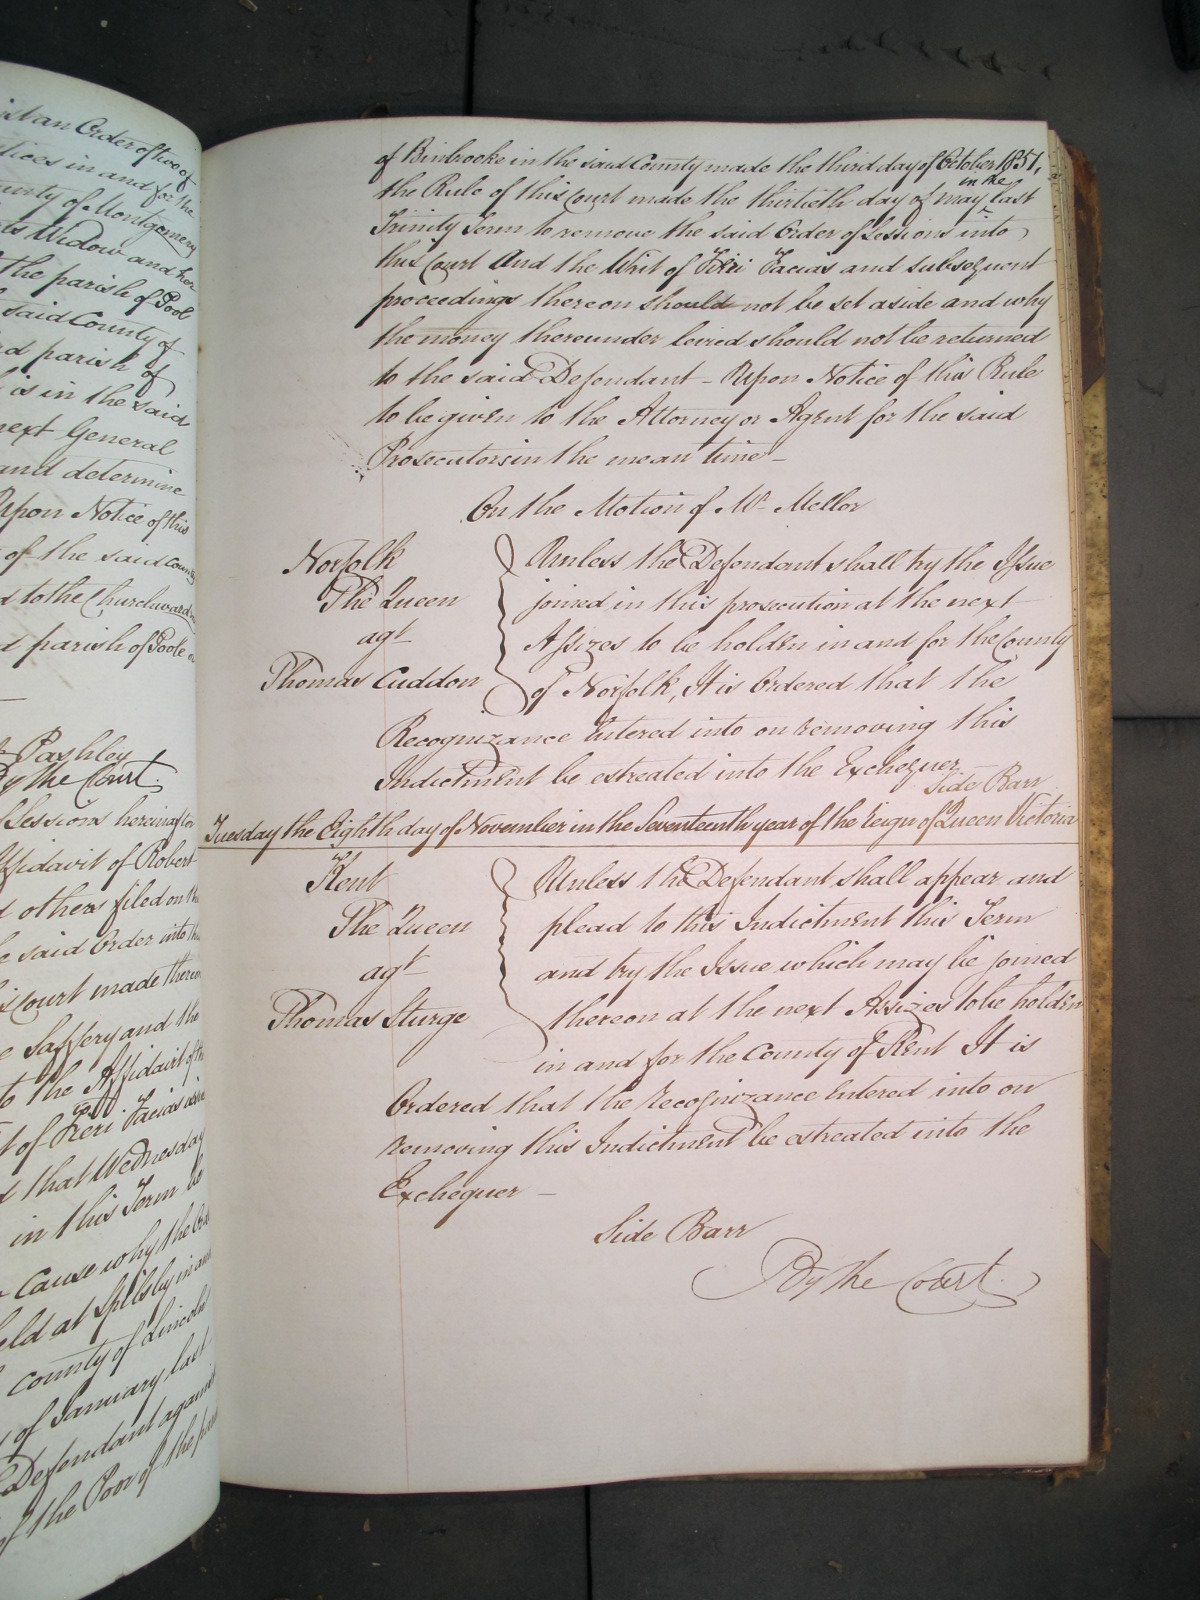 is an Order of two of
tices in and for the
unty of Montgomery
ts Widow and her
the parish of Pool
said County of
d parish of
is in the said
next General
and determine
Upon Notice of this
of the said County
d to the Churchwardens
d parish of Poole
Pashley
By the Court
Sessions hereinafter
Affidavit of Robert
d others filed on the
e said Order into th
is Court made thereon
e Saffery and the
to the Affidavit of th
t of Fieri Facias issu
d that Wednesday
in this Term be
Cause why the Ord
eld at Spilsby in an
County of Lincoln
of January last
Defendant against
of the Poor of the par
of Binbrooke in the said County made the third day of October 1851,
the Rule of this Court made the thirtieth day of may in the last
Trinity Term to remove the said Order of Sessions into
this Court And the Writ of Fieri Facias and subsequent
proceedings thereon should not be set aside and why
the money thereunder levied should not be returned
to the said Defendant - Upon Notice of this Rule
to be given to the Attorney or Agent for the said
Prosecutors in the mean time -
On the Motion of Mr. Mellor
Norfolk
The Queen
agt
Thomas Cuddon
Unless the Defendant shall try the Issue
joined in this prosecution at the next
Assizes to be holden in and for the County
of Norfolk, It is Ordered that the
Recognizance Entered into on removing this
Indictment be estreated into the Exchequer -
Side Barr
Tuesday the Eighth day of November in the Seventeenth year of the reign of Queen Victoria
Kent
The Queen
agt
Thomas Sturge
Unless the Defendant shall appear and
plead to this Indictment this Term
and try the Issue which may be joined
thereon at the next Assizes to be holden
in and for the County of Kent It is
Ordered that the Recognizance Entered into on
removing this Indictment be estreated into the
Exchequer -
Side Barr
By the Court